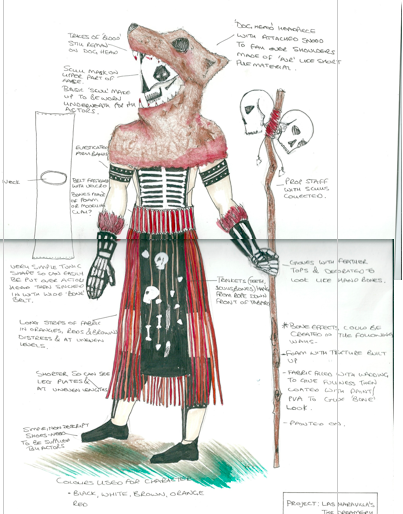 TRACES OF 'BLOOD'
STILL REMAIN
ON DOG HEAD
'DOG HEAD' HEADPIECE
WITH ATTACHED SNOOD
TO FAN OVER SHOULDERS
MADE OF 'FUR' LIKE SHORT
PILE MATERIAL.
SKULL MASK ON
UPPER PART OF
FACE.
BASIC 'SKULL' MAKE
UP TO BE WORN
UNDERNEATH FOR THE
ACTORS.
ELASTICATED
ARM BAND
NECK
BELT FASTENED
WITH VELCRO
BONES MADE
OF FOAM
OR MODELLING
CLAY?
PROP STAFF
WITH SKULLS
COLLECTED.
VERY SIMPLE TUNIC
SHAPE SO CAN EASILY
BE PUT OVER ACTORS
HEAD THEN SYNCHED
IN WITH WIDE 'BONE'
BELT.
GLOVES WITH FEATHER
TOPS & DECORATED TO
LOOK LIKE HAND BONES.
TRINKETS (TEETH,
SKULLS, BONES) HANG
FROM ROPE DOWN
FRONT OF
LONG STRIPS OF FABRIC
IN ORANGES, REDS & BROWNS
DISTRESS & AT UNEVEN
LEVELS.
BONE EFFECTS, COULD BE
CREATED IN THE FOLLOWING
WAYS.
- FOAM WITH TEXTURE BUILT
UP
- FABRIC FILLED WITH WADDING
TO GIVE FULLNESS THEN
COATED WITH PAINT/
PVA TO GIVE 'BONE'
LOOK.
- PAINTED ON.
SHORTER SO CAN SEE
LEG PLATES &
AT UNEVEN LENGTHS
SHOES
TO BE SUPPLIED
ACTORS
COLOURS USED FOR CHARACTER
- BLACK, WHITE, BROWN, ORANGE
RED
PROJECT: LAS MARAVILLA'S
THE CREAMERY